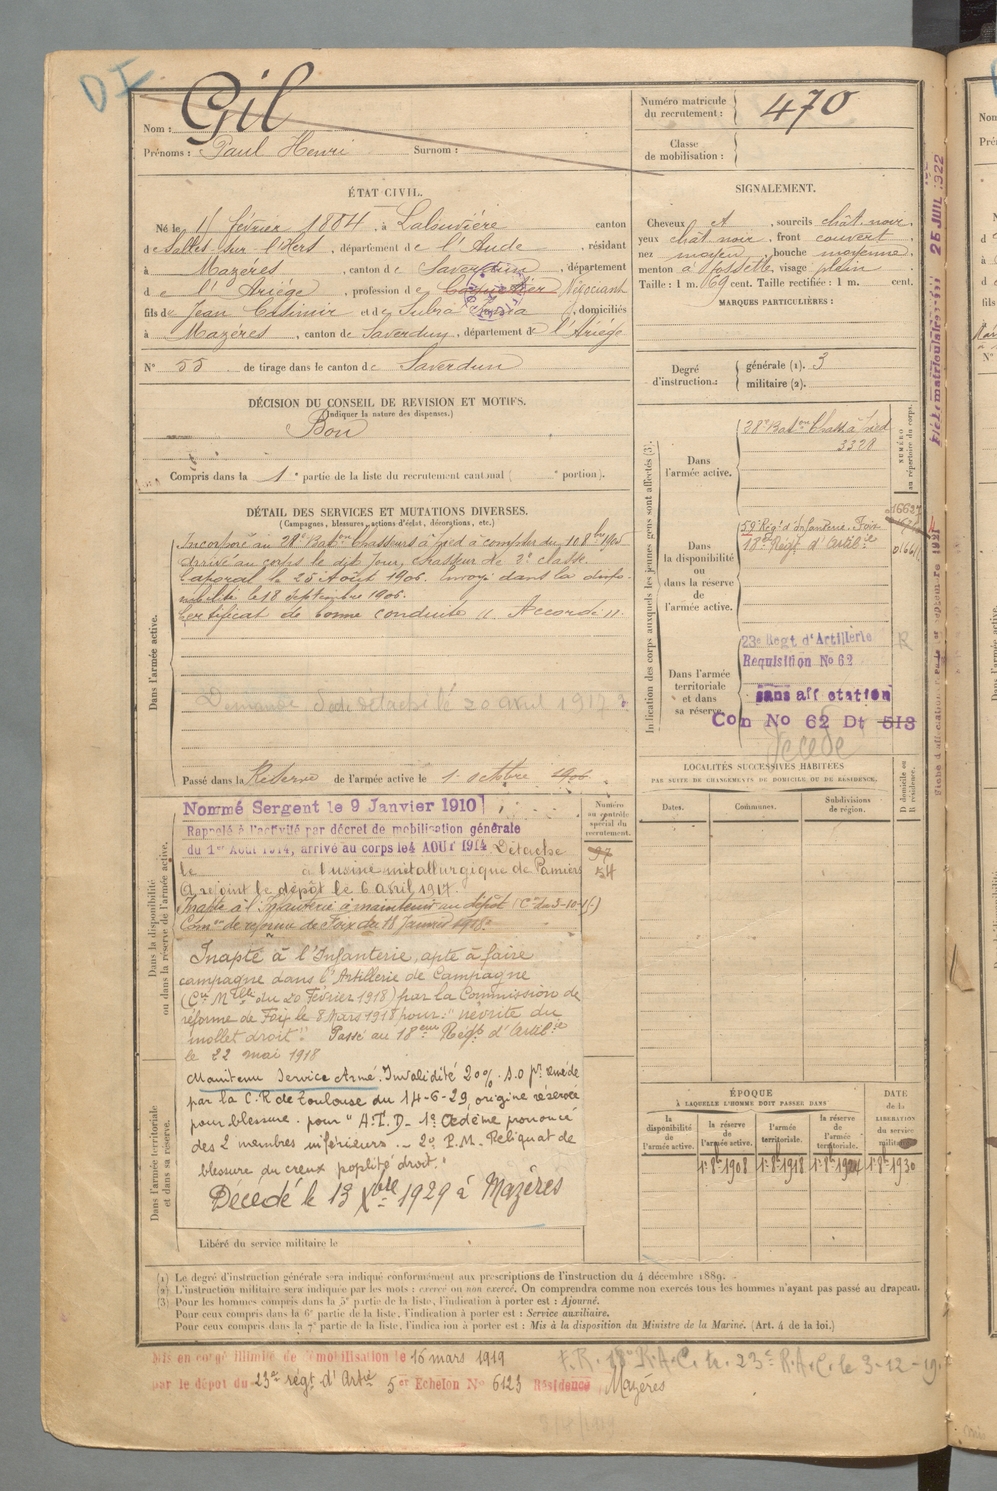 DI
Nom : Gil
Prénoms : Paul Henri Surnom :
Numéro matricule du recrutement : 470
Classe de mobilisation :
ÉTAT CIVIL.
Né le février 1884, à Lalouvière canton
de Salles sur l'Hers, département de l'Aude, résidant
à Mazéres, canton de Saverdun, département
de l'Ariège, profession de Négociant
fils de Jean Casimir et de Subra, domiciliés
à Mazéres, canton de Saverdun, département de l'Ariège
N° 55 de tirage dans le canton de Saverdun
SIGNALEMENT.
Cheveux et, sourcils chât noir,
yeux chât noir, front couvert,
nez moyen, bouche moyenne,
menton à fossette, visage plein
Taille : 1 m. 69 cent. Taille rectifiée : 1 m. cent.
MARQUES PARTICULIÈRES :
Degré d'instruction :
générale (1). 3
militaire (2).
DÉCISION DU CONSEIL DE REVISION ET MOTIFS.
(Indiquer la nature des dispenses.)
Bon
Compris dans la 1e partie de la liste du recrutement cantonal ( e portion).
DÉTAIL DES SERVICES ET MUTATIONS DIVERSES.
(Campagnes, blessures, actions d'éclat, décorations, etc.)
Dans l'armée active.
Incorporé au 28e Baton Chasseurs à pied à compter du 8 8bre 1905
Arrivé au corps le dit jour, chasseur de 2e classe.
Caporal le 25 Août 1906. Envoyé dans la dispo-
nibilité le 18 Septembre 1906.
Certificat de bonne conduite " Accordé ".
détaché le 20 avril 1917
Passé dans la Réserve de l'armée active le 1er octobre
Dans la disponibilité ou dans la réserve de l'armée active.
Numéro au contrôle spécial du recrutement.
97
54
Nommé Sergent le 9 Janvier 1910
Rappelé à l'activité par décret de mobilisation générale
du 1er Août 1914, arrivé au corps le 4 AOUT 1914 Détaché
le à l'usine métallurgique de Pamiers
A rejoint le dépôt le 6 avril 1917.
Inapte à l'Infanterie à maintenir au dépôt
Comon de réforme de Foix du 18 Janvier 1918.
Inapte à l'Infanterie, apte à faire
campagne dans l'Artillerie de Campagne
(Cre Mlle du 20 Février 1918) par la Commission de
réforme de Foix le 8 Mars 1918 pour : " névrite du
mollet droit". Passé au 18eme Régt d'Artilie
le 22 mai 1918
Dans l'armée territoriale et dans sa réserve.
Maintenu Service Armé. Invalidité 20%.
par la C.R de Toulouse du 14-6-29, origine réservée
pour blessure. pour " A.T.D. 1° Oedème prononcé
des 2 membres inférieurs. - 2° P.M. Reliquat de
blessure du creux poplité droit."
Décédé le 13 Xbre 1929 à Mazères
Libéré du service militaire le
Indication des corps auxquels les jeunes gens sont affectés (3).
NUMÉRO au répertoire du corps.
Dans l'armée active.
28e Baton Chass. à pied
3328
Dans la disponibilité ou dans la réserve de l'armée active.
59e Régt d'Infanterie. Foix
18e Régt d'Artilie
Dans l'armée territoriale et dans sa réserve.
23e Régt d'Artillerie R
Requisition No 62
sans affectation
Con No 62 Dt 513
Décédé
LOCALITÉS SUCCESSIVES HABITÉES
PAR SUITE DE CHANGEMENTS DE DOMICILE OU DE RÉSIDENCE.
Dates. Communes. Subdivisions de région. D domicile ou R résidence.
ÉPOQUE
À LAQUELLE L'HOMME DOIT PASSER DANS
la disponibilité de l'armée active. la réserve de l'armée active. l'armée territoriale. la réserve de l'armée territoriale.
DATE de la LIBÉRATION du service militaire.
1er 8bre 1908 1er 8bre 1918 1er 8bre 1924 1er 8bre 1930
(1) Le degré d'instruction générale sera indiqué conformément aux prescriptions de l'instruction du 4 décembre 1889.
(2) L'instruction militaire sera indiquée par les mots : exercé ou non exercé. On comprendra comme non exercés tous les hommes n'ayant pas passé au drapeau.
(3) Pour les hommes compris dans la 5e partie de la liste, l'indication à porter est : Ajourné.
Pour ceux compris dans la 6e partie de la liste, l'indication à porter est : Service auxiliaire.
Pour ceux compris dans la 7e partie de la liste, l'indication à porter est : Mis à la disposition du Ministre de la Marine. (Art. 4 de la loi.)
Mis en congé illimité de démobilisation le 16 mars 1919
par le dépôt du 23e régt d'Artie 5er Echelon No 6123 Résidence Mazères
18e R.A.C. tr. 23e R.A.C. le 3-12-19